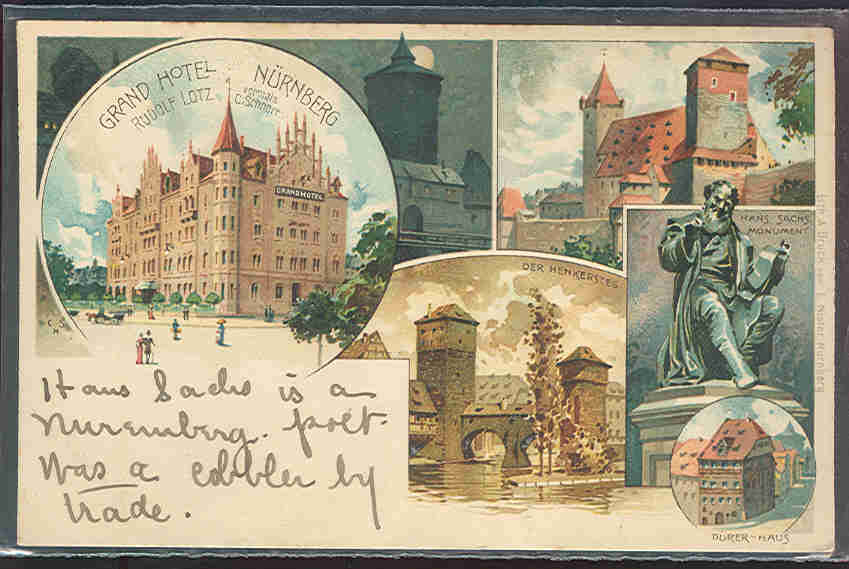 GRAND HOTEL NÜRNBERG
RUDOLF LOTZ vormals C. Schnorr.
GRAND HOTEL
C. S.
H
DER HENKERSTEG
HANS SACHS
MONUMENT
DÜRER-HAUS
Nürnberg
Hans Sachs is a
Nuremberg. poet.
Was a cobbler by
trade.